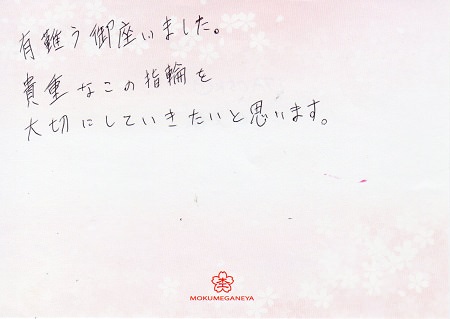 有難う御座いました。
貴重なこの指輪を
大切にしていきたいと思います。
MOKUMEGANEYA